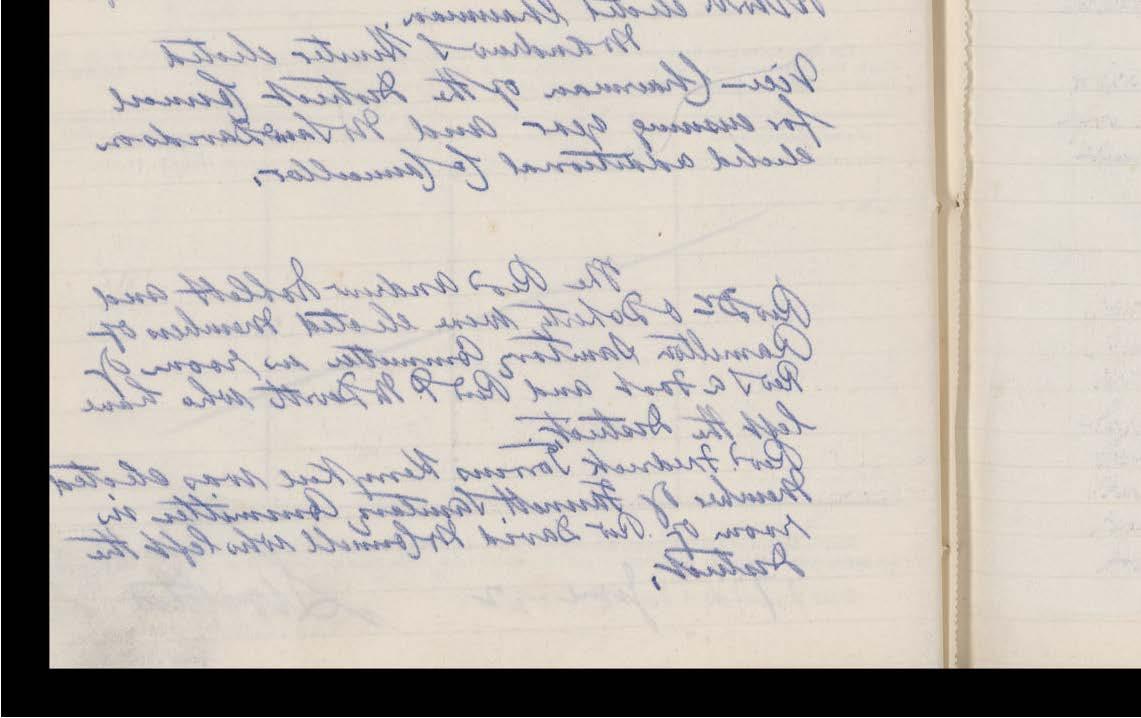 elected Chairman
Mr Andrew S Hunter elected
Vice-Chairman of the District Council
for ensuing year and Mr Davidson
elected additional Co Councillor.
The Revd Andrew and
Revd Dr O Doherty were elected members of
Ramelton Sanitary Committee in room of
Revd J a and Revd P McDevitt who have
left the District.
Revd Fredrick was elected
Member of Fannett Sanitary Committee in
room of Rev David McConnell who left the
District.